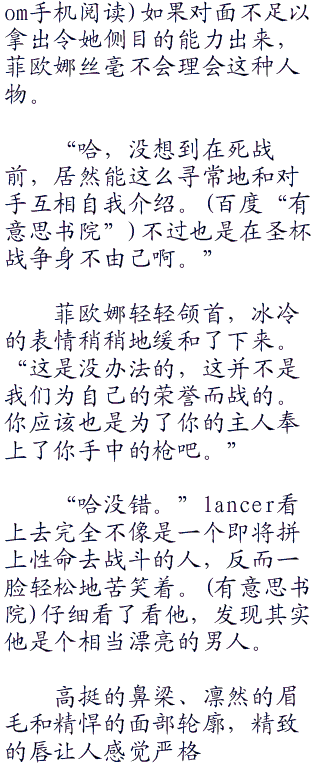 om手机阅读)如果对面不足以
拿出令她侧目的能力出来，
菲欧娜丝毫不会理会这种人
物。
“哈，没想到在死战
前，居然能这么寻常地和对
手互相自我介绍。(百度“有
意思书院”)不过也是在圣杯
战争身不由己啊。”
菲欧娜轻轻颌首，冰冷
的表情稍稍地缓和了下来。
“这是没办法的，这并不是
我们为自己的荣誉而战的。
你应该也是为了你的主人奉
上了你手中的枪吧。”
“哈没错。”lancer看
上去完全不像是一个即将拼
上性命去战斗的人，反而一
脸轻松地苦笑着。(有意思书
院)仔细看了看他，发现其实
他是个相当漂亮的男人。
高挺的鼻梁、凛然的眉
毛和精悍的面部轮廓，精致
的唇让人感觉严格